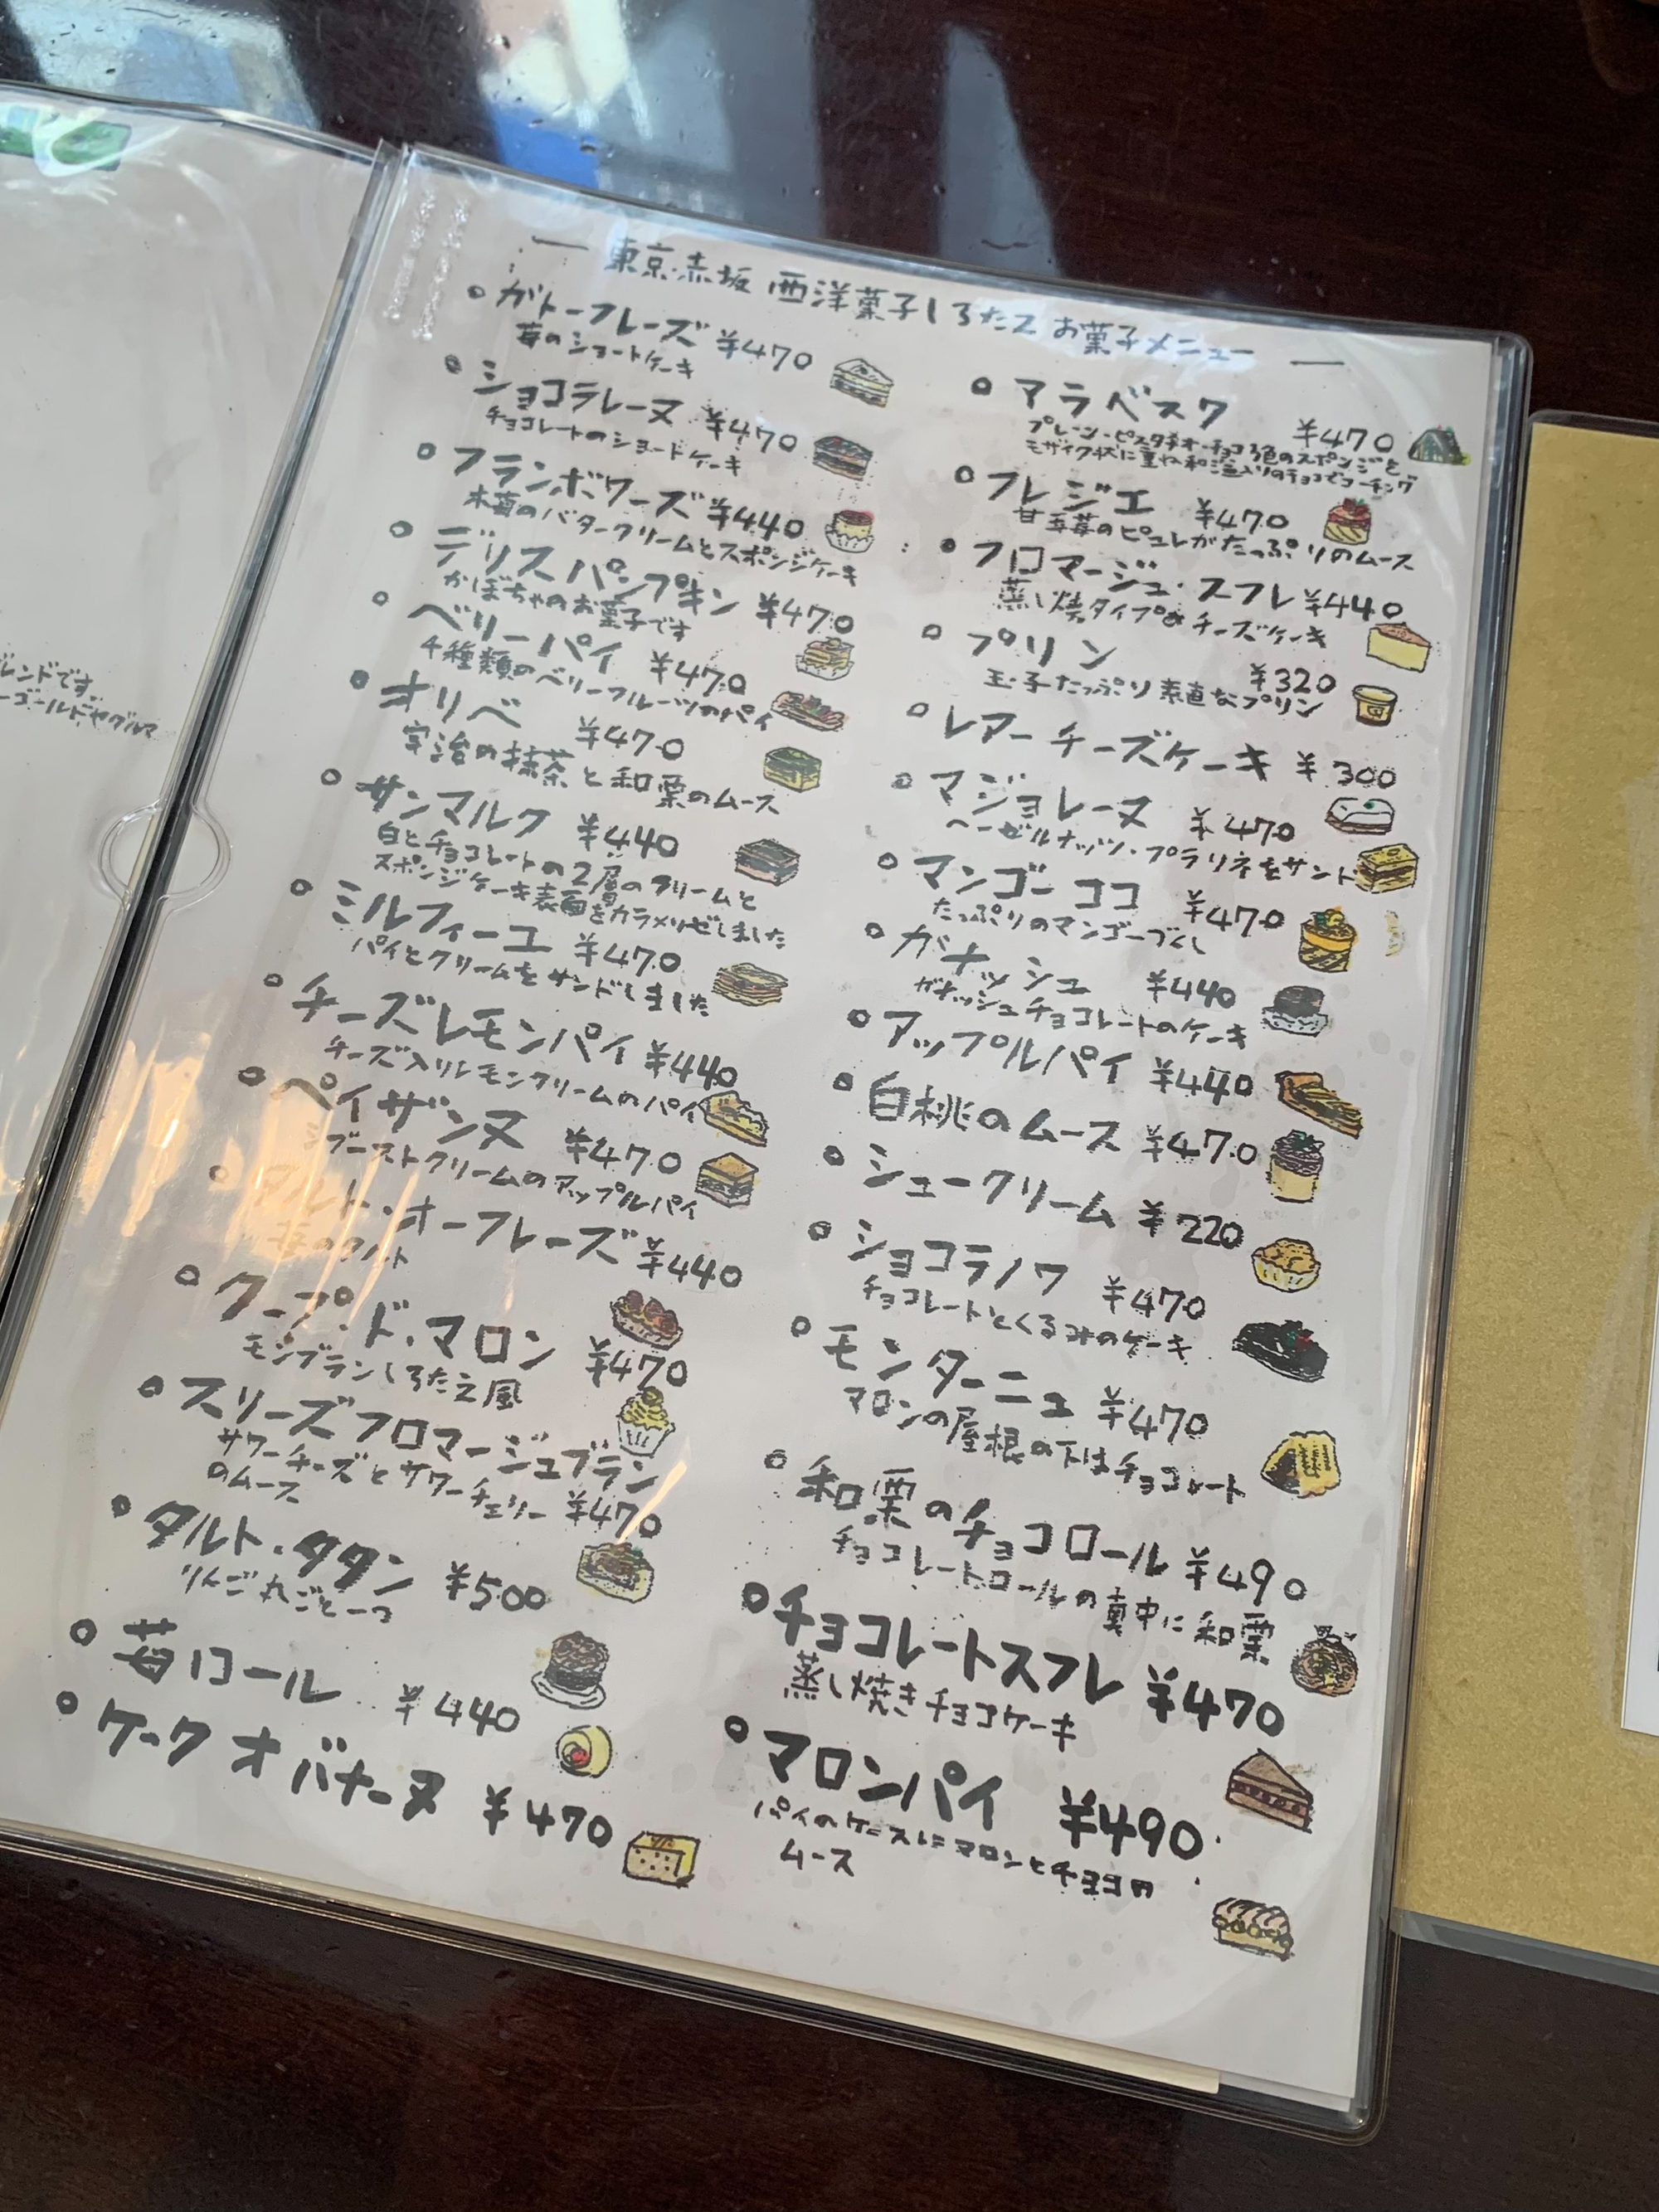 レンドです。
ーゴールドやグルマ
— 東京赤坂 西洋菓子しろたえ お菓子メニュー —
ガトーフレーズ ¥470
苺のショートケーキ
ショコラレーヌ ¥470
チョコレートのショートケーキ
フランボワーズ ¥440
木苺のバタークリームとスポンジケーキ
デリスパンプキン ¥470
かぼちゃのお菓子です
ベリーパイ ¥470
千種類のベリーフルーツのパイ
オリベ ¥470
宇治の抹茶と和栗のムース
サンマルク ¥440
白とチョコレートの2層のクリームと
スポンジケーキ表面をカラメリゼしました
ミルフィーユ ¥470
パイとクリームをサンドしました
チーズレモンパイ ¥440
チーズ入りレモンクリームのパイ
ペイザンヌ ¥470
ブーストクリームのアップルパイ
タルト・オーフレーズ ¥440
苺のタルト
クープ・ド・マロン ¥470
モンブランしろたえ風
スリーズフロマージュブラン
サワーチーズとサワーチェリー ¥470
のムース
タルト・タタン ¥500
りんご丸ごと一つ
苺ロール ¥440
ケーク オ バナーヌ ¥470
アラベスク ¥470
プレーン・ピスタチオ・チョコ3色のスポンジを
モザイク状に重ね和酒入りのチョコでコーチング
フレジエ ¥470
甘王苺のピュレがたっぷりのムース
フロマージュ・スフレ ¥440
蒸し焼タイプのチーズケーキ
プリン ¥320
玉子たっぷり素直なプリン
レアーチーズケーキ ¥300
マジョレーヌ ¥470
ヘーゼルナッツ・プラリネをサンド
マンゴーココ ¥470
たっぷりのマンゴーづくし
ガナッシュ ¥440
ガナッシュチョコレートのケーキ
アップルパイ ¥440
白桃のムース ¥470
シュークリーム ¥220
ショコラノワ ¥470
チョコレートとくるみのケーキ
モンターニュ ¥470
マロンの屋根の下はチョコレート
和栗のチョコロール ¥490
チョコレートロールの真中に和栗
チョコレートスフレ ¥470
蒸し焼きチョコケーキ
マロンパイ ¥490
パイのケースにマロンとチョコの
ムース